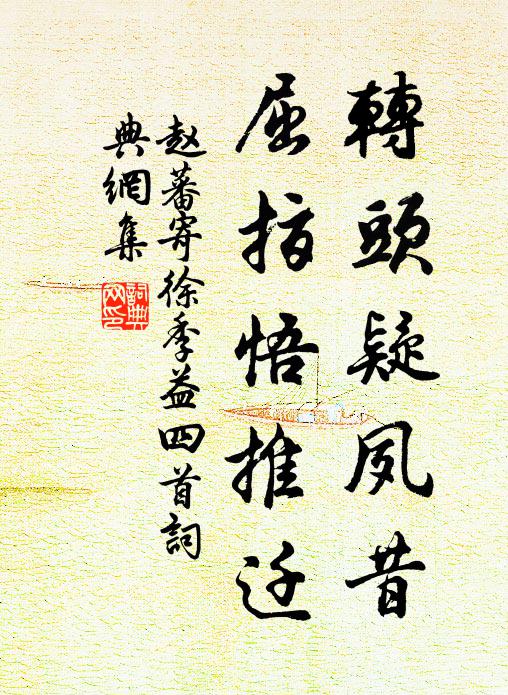 轉頭疑夙昔
屈指悟推迁
赵蕃寄徐季益四首詞
典網集
詞典
网印